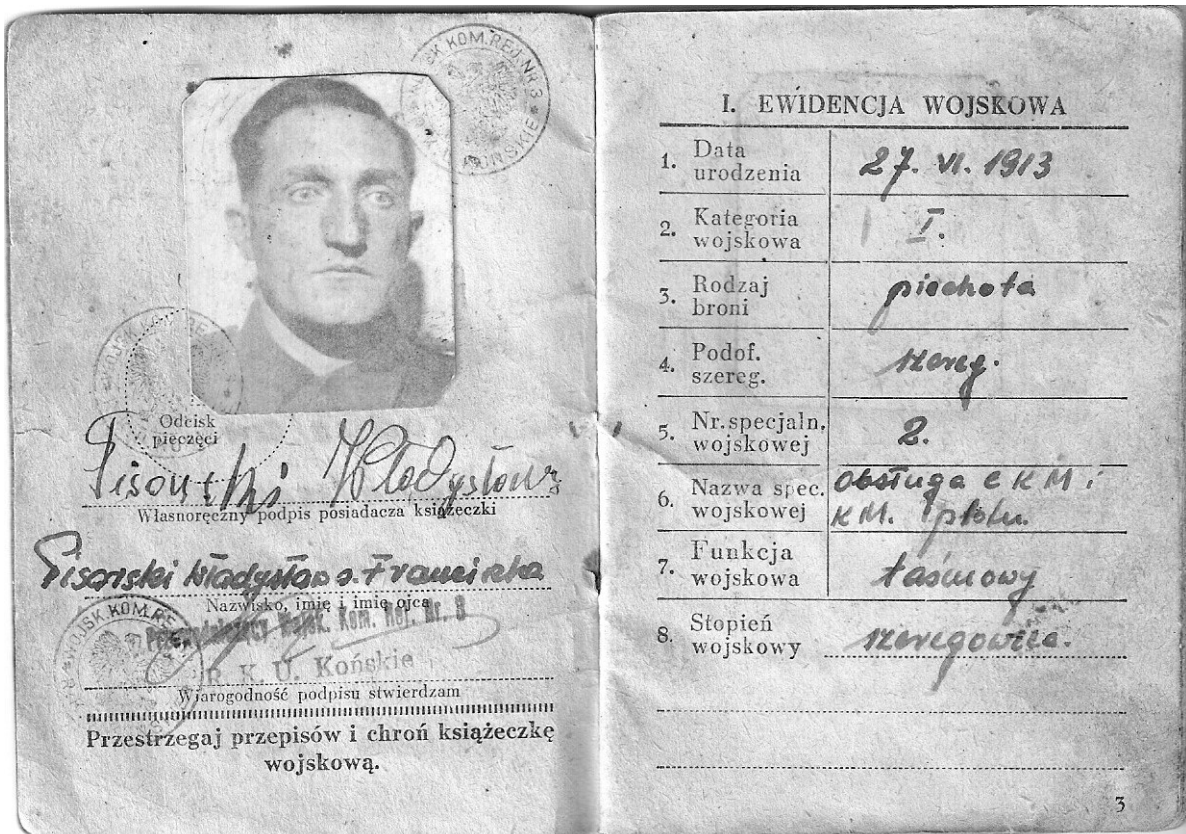 WOJSK. KOM. REJ. Nr 3
KOŃSKIE
Odcisk
pieczęci
Pisarski Władysław
Własnoręczny podpis posiadacza książeczki
Pisarski Władysław s. Franciszka
Nazwisko, imię i imię ojca
Przewodniczący Wojsk. Kom. Rej. Nr. 3
R. K. U. Końskie
Wiarogodność podpisu stwierdzam
Przestrzegaj przepisów i chroń książeczkę
wojskową.
I. EWIDENCJA WOJSKOWA
1. Data urodzenia 27. VI. 1913
2. Kategoria wojskowa I.
3. Rodzaj broni piechota
4. Podof. szereg. szereg.
5. Nr. specjaln. wojskowej 2.
6. Nazwa spec. wojskowej obsługa C K M i
K M. plotn.
7. Funkcja wojskowa taśmowy
8. Stopień wojskowy szeregowiec.
3